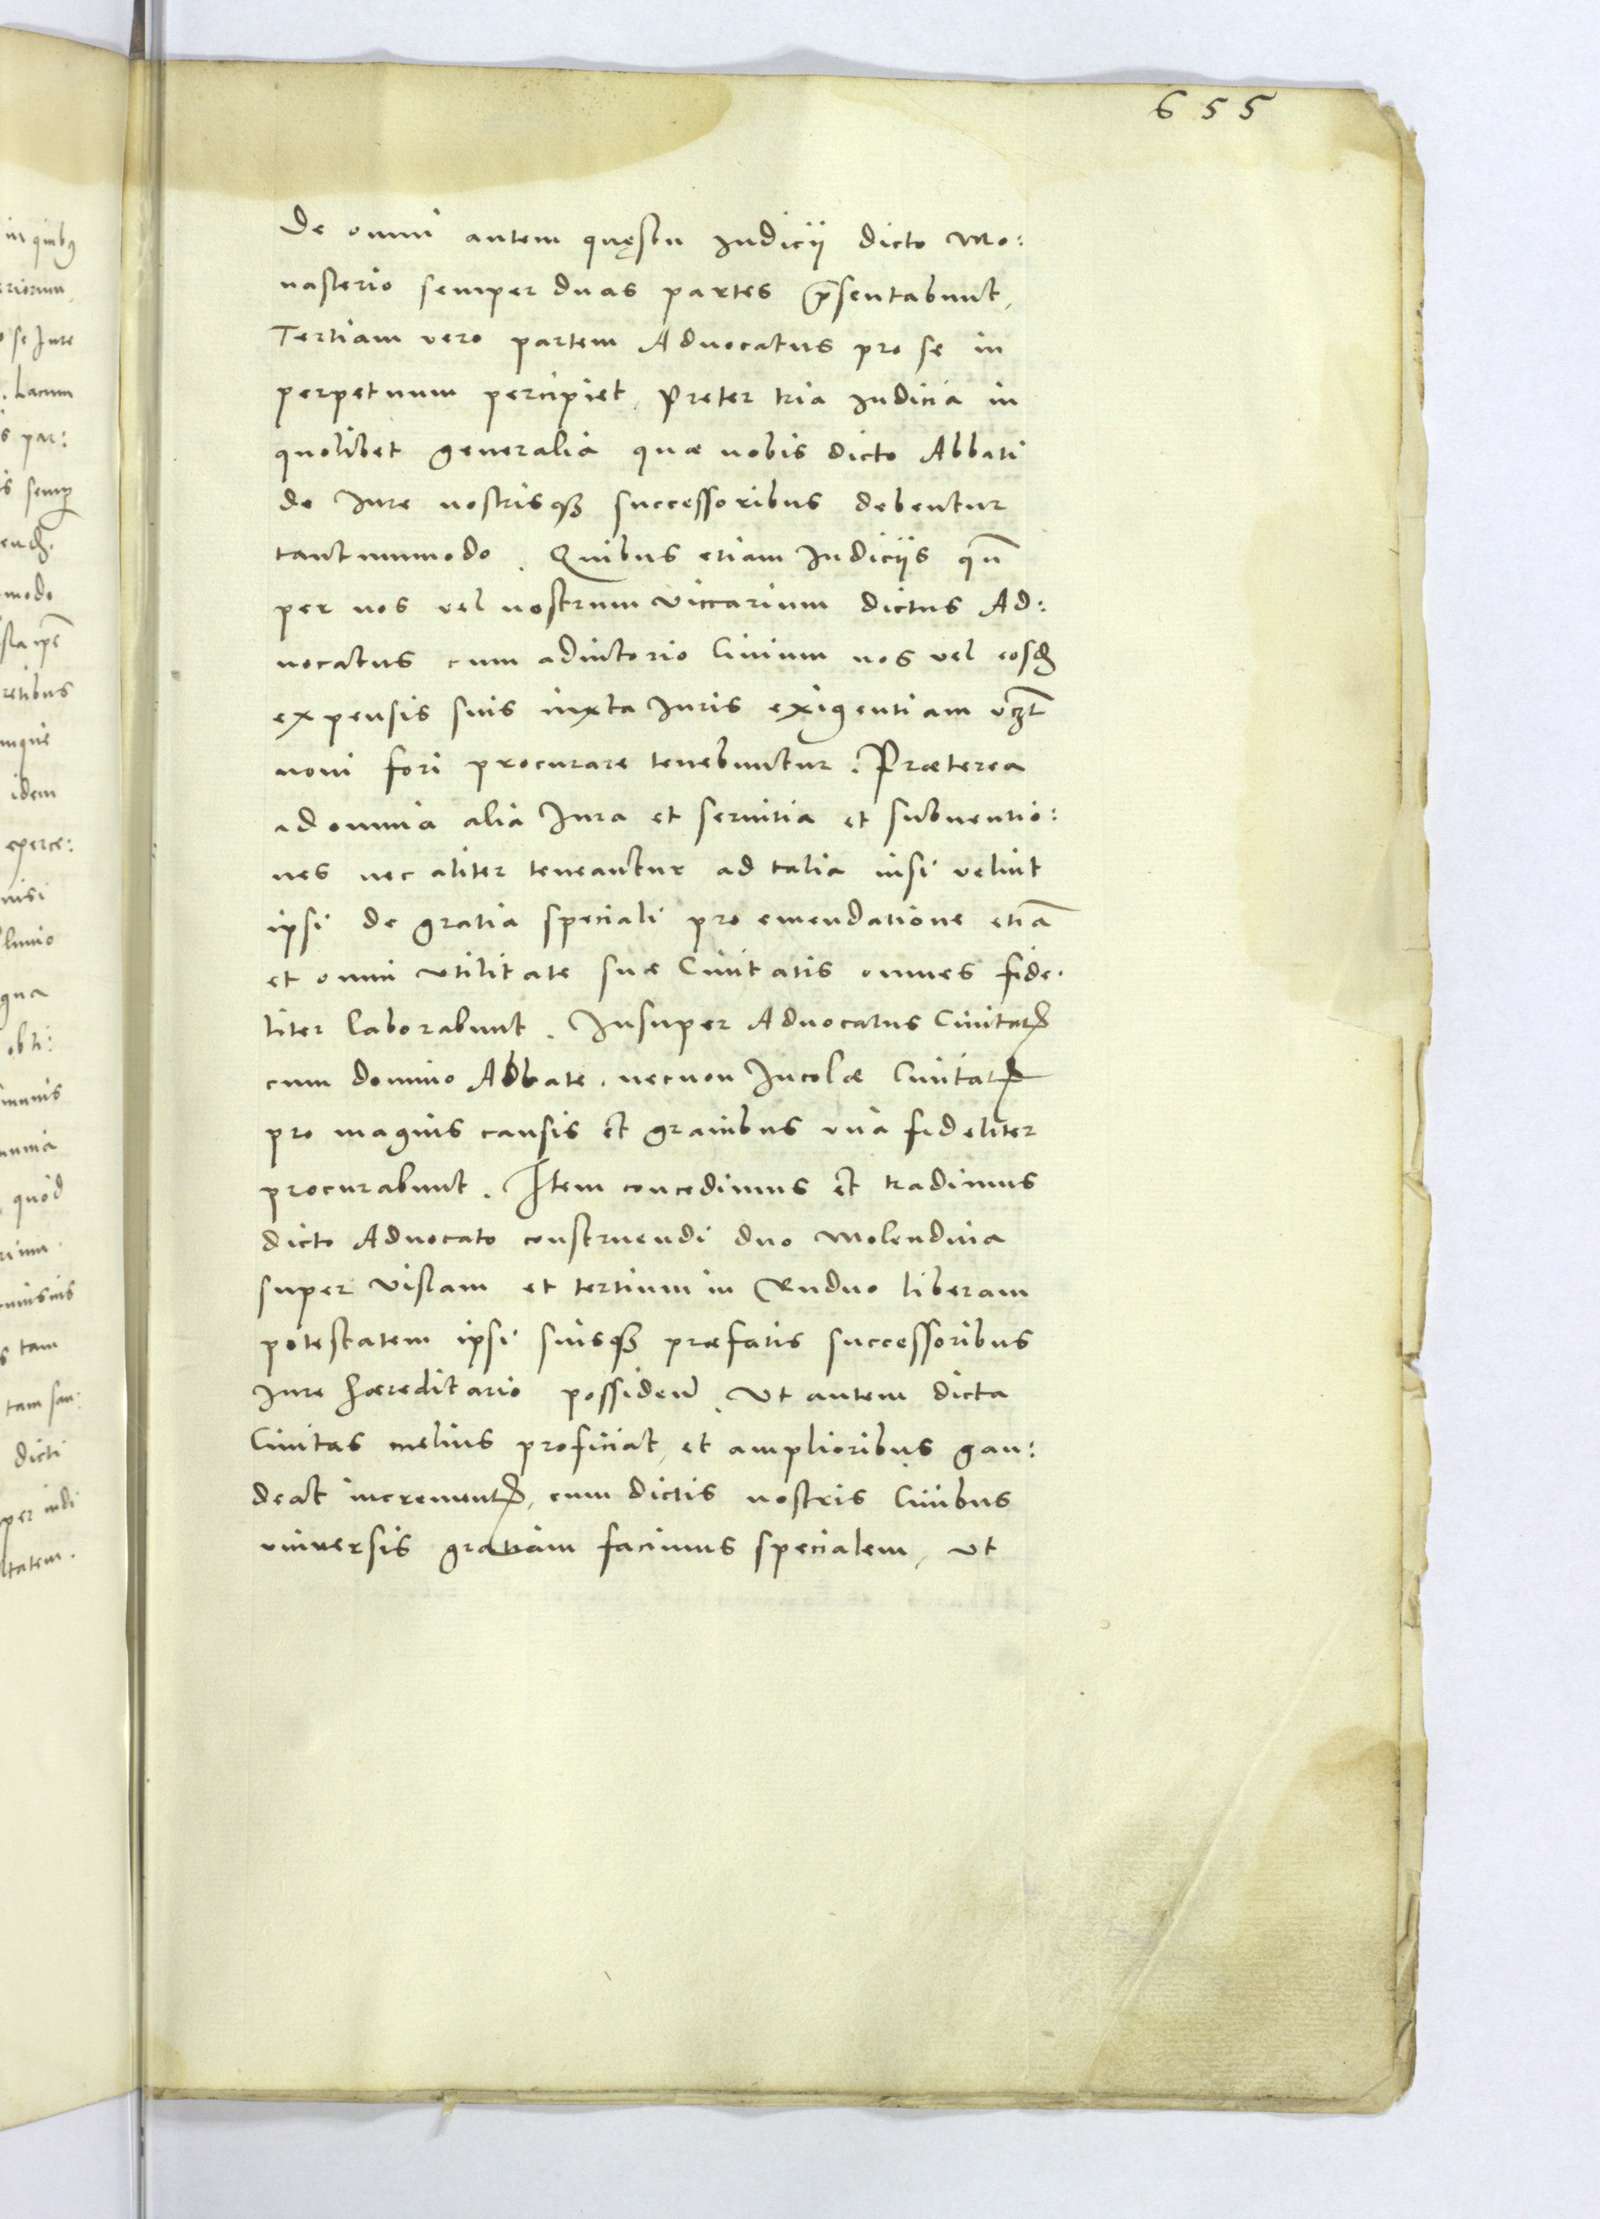 655
De omni autem quęstu Iudicii dicto Mo:
nasterio semper duas partes p̄sentabunt,
Tertiam vero partem Aduocatus pro se in
perpetuum percipiet. Preter tria Iudicia in
quolibet generalia quae nobis dicto Abbati
de Iure nostrisqꝫ successoribus debentur
tantummodo. Quibus etiam Iudiciis qn̄
per nos vel nostrum viccarium dictus Ad:
uocatus cum adiutorio Ciuium nos vel eosd
expensis suis iuxta Iuris exigentiam vꝫt
noui fori procurare tenebuntur. Praeterea
ad omnia alia Iura et seruitia et subuentio:
nes nec aliter teneantur ad talia nisi velint
ipsi de gratia speciali pro emendatione etiā
et omni vtilitate suae Ciuitatis omnes fide:
liter laborabunt. Insuper Aduocatus Ciuitatꝭ
cum domino Abbate. necnon Incolae Ciuitatꝭ
pro magnis causis et grauibus vna fideliter
procurabunt. Item concedimus et tradimus
dicto Aduocato construendi duo Molendina
super Vislam et tertium in Ruduo liberam
potestatem ipsi suisqꝫ praefatis successoribus
Iure haereditario possidend. Vt autem dicta
Ciuitas melius proficiat, et amplioribus gau:
deat incrementꝭ, cum dictis nostris Ciuibus
vniuersis gratiam facimus specialem, vt
in quibꝰ
se Iure
Lacum
par:
semꝑ
modo
retibus
idem
nisi
qua
obti:
quod
tam
tam san:
dicti